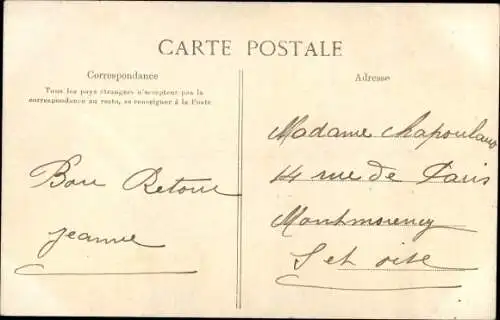 CARTE POSTALE
Correspondance
Tous les pays étrangers n'acceptent pas la
correspondance au recto, se renseigner à la Poste
Adresse
Bon Retour
Jeanne
Madame Chapoulaud
14 rue de Paris
Montmorency
S et Oise